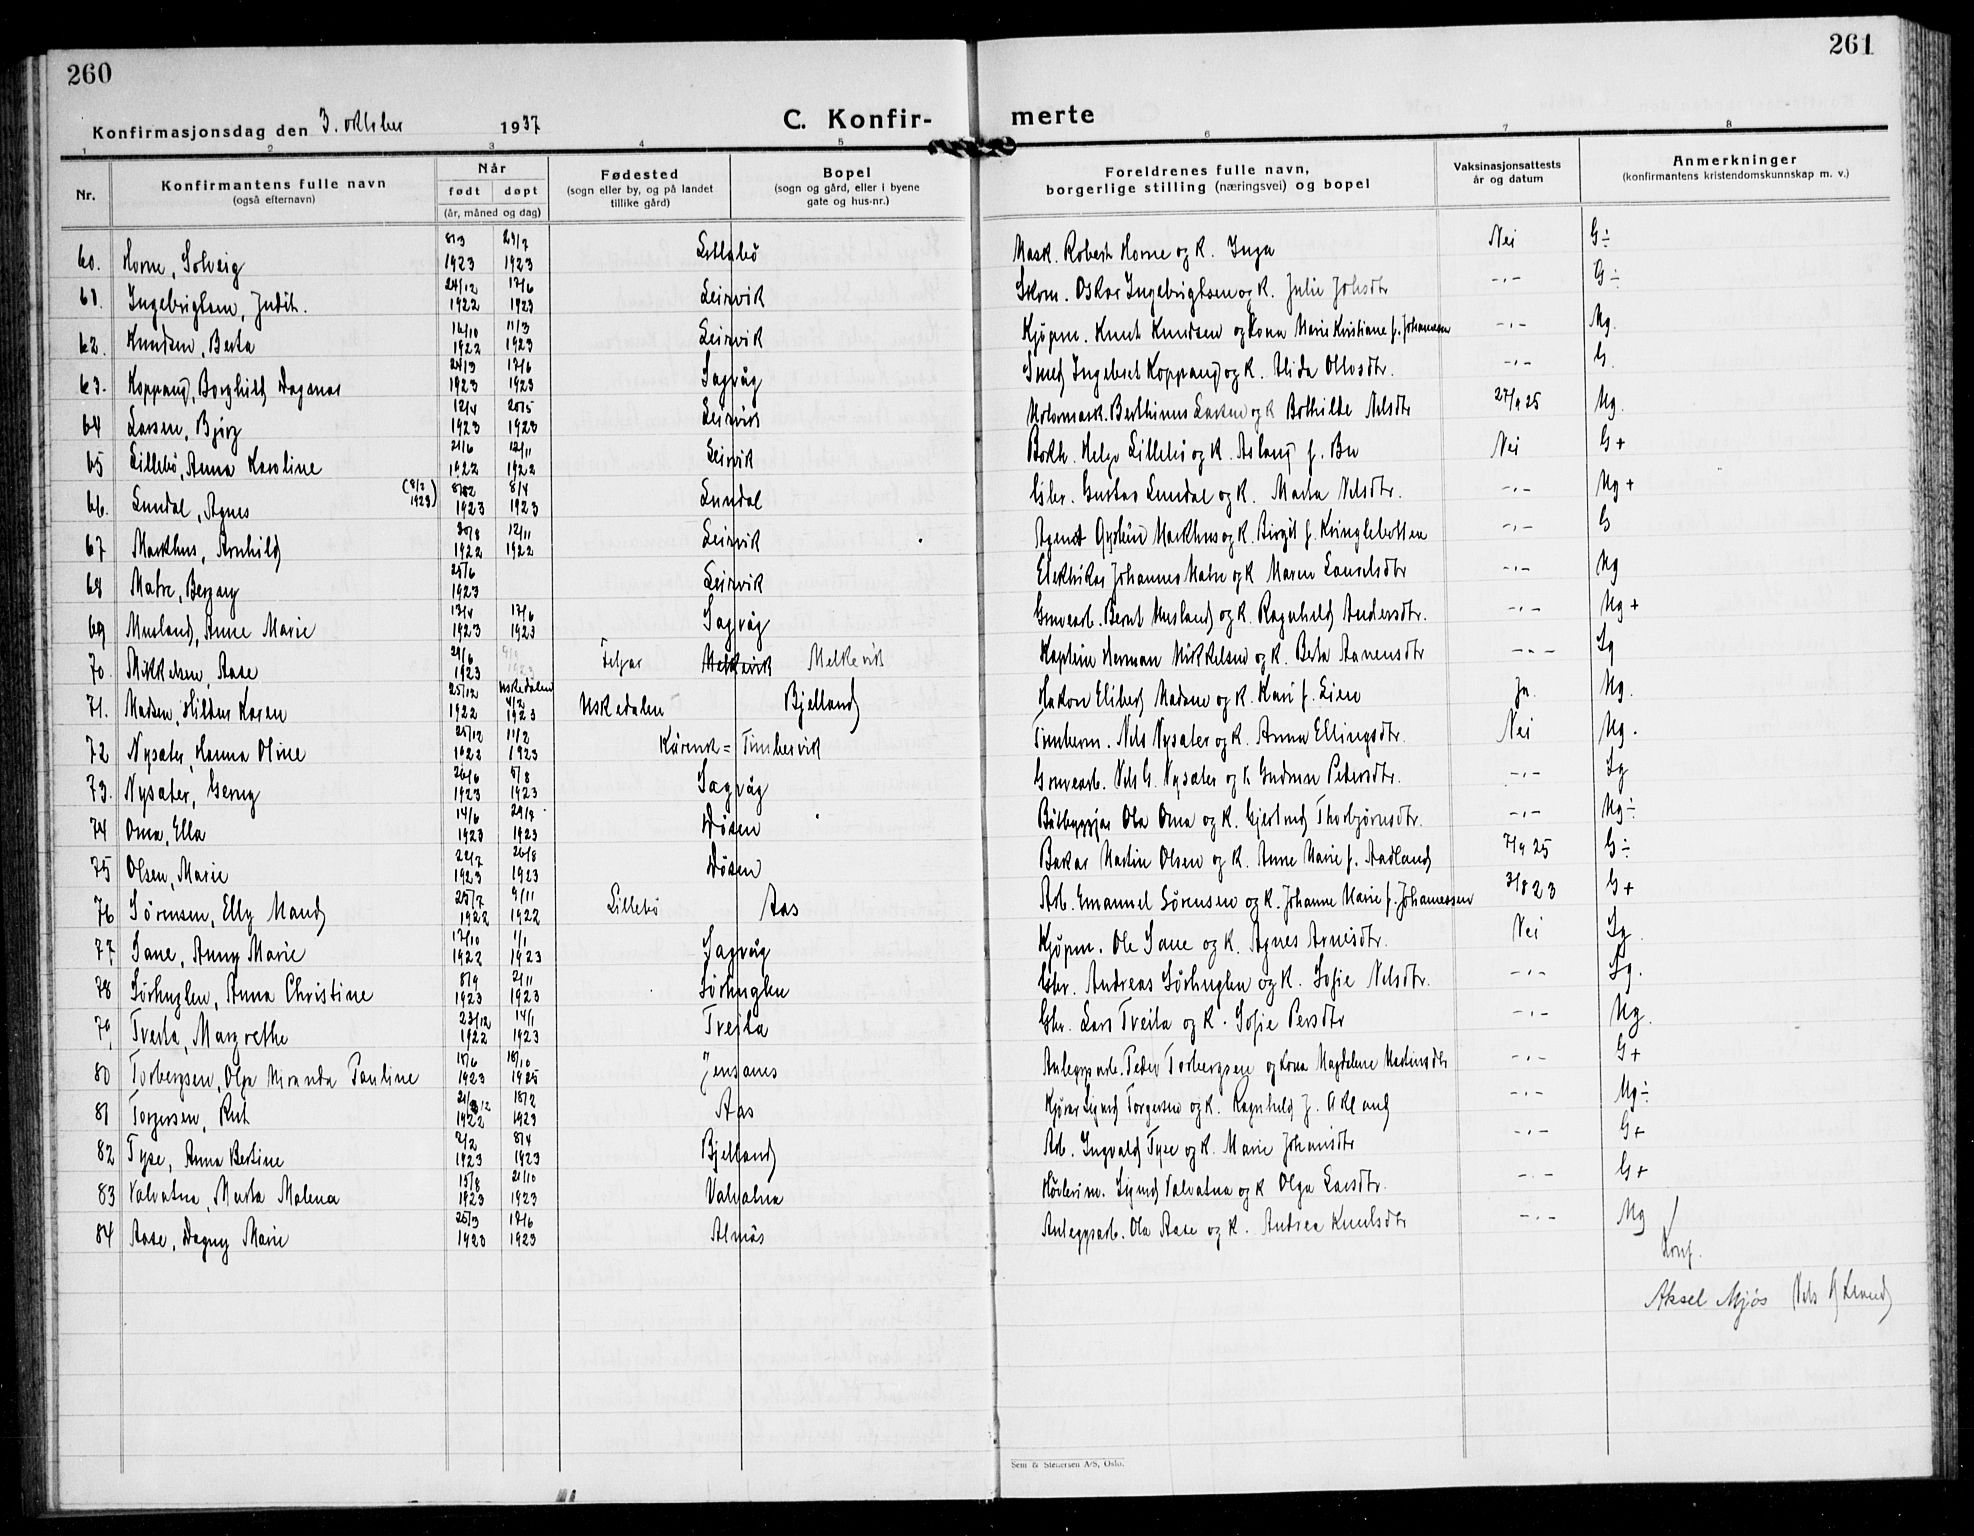 260
261
Konfirmasjonsdag den 3. oktober 1937
C. Konfir-
merte
1 2 3 4 5 6 7 8
Nr.
Konfirmantens fulle navn
(også efternavn)
Når
født døpt
(år, måned og dag)
Fødested
(sogn eller by, og på landet
tillike gård)
Bopel
(sogn og gård, eller i byene
gate og hus-nr.)
Foreldrenes fulle navn,
borgerlige stilling (næringsvei) og bopel
Vaksinasjonsattests
år og datum
Anmerkninger
(konfirmantens kristendomskunnskap m. v.)
60. Horne, Solveig 8/3 1923 29/7 1923 Lillebø Mask. Robert Horne og K. Inga Nei G÷
61. Ingebrigtsen, Judit. 24/12 1922 17/6 1923 Leirvik Skom. Oskar Ingebrigtsen og K. Julie Johsdtr -"- G÷
62. Knudsen, Berta 16/10 1922 11/3 1923 Leirvik Kjøpm. Knut Knudsen og Kona Marie Kristiane f. Johannesen -"- Mg.
63. Koppang, Borghild Dagmar 24/3 1923 17/6 1923 Sagvåg Smed Ingebret Koppang og K. Alida Olsdtr. -"- G.
64 Larsen, Bjørg 12/4 1923 20/5 1923 Leirvik Motormask. Berthinus Larsen og K Bothilde Nilsdtr 27/9 25 Mg.
65 Lillebø, Anna Karoline 21/6 1922 12/11 1922 Leirvik Bokh. Helge Lillebø og K. Aslaug f. Bu Nei G+
66. Lundal, Agnes (8/2 1923) 8/12 1923 8/4 1923 Lundal Gbr. Gustav Lundal og K. Marta Nilsdtr. -"- Mg+
67 Markhus, Arnhild 30/8 1922 12/11 1922 Leirvik Agent Øystein Markhus og K. Birgit f. Kringlebotten -"- G
68 Matre, Bergny 25/6 1923 Leirvik Elektriker Johannes Matre og K Maren Lauritsdtr -"- Mg
69 Musland, Anne Marie 13/4 1923 17/6 1923 Sagvåg Gruvearb. Bernt Musland og K. Ragnhild Andersdtr. -"- Mg+
70. Mikkelsen, Aase 29/6 1923 1923 Melkevik Melkevik Kaptein Herman Mikkelsen og K. Berta Aanensdtr -"- Sg
71. Madsen, Hildur Karen 25/12 1922 Uskedalen 4/2 1923 Uskedalen Bjelland Hakon Elibert Madsen og K. Kari f. Eien Ja. Mg.
72 Nysæter, Hanna Oline 25/12 1922 11/2 1923 Kårevik = Timbervik Timberm. Nils Nysæter og K. Anna Ellingsdtr. Nei Mg.
73. Nysæter, Gerny 26/6 1923 5/8 1923 Sagvåg Gruvearb. Nils G. Nysæter og K Gudrun Pedersdtr. -"- Sg
74 Oma, Ella 14/6 1923 29/9 1923 Døsen Båtbyggjar Ola Oma og K. Gjertrud Thorbjørnsdtr. -"- Mg÷
75 Olsen, Marie 22/7 1923 26/8 1923 Døsen Bakar Martin Olsen og K. Anne Marie f. Aadland 7/9 25 G÷
76 Sørensen, Elly Maud 25/7 1922 9/11 1922 Lillebø Aas Arb. Emanuel Sørensen og K. Johanne Marie f. Johannessen 3/8 23 G+
77 Sane, Anny Marie 17/10 1922 1/1 1923 Sagvåg Kjøpm. Ole Sane og K. Agnes Arnesdtr. Nei Sg
78 Sørhuglen, Anna Christine 8/9 1923 2/11 1923 Sørhuglen Gbr. Andreas Sørhuglen og K. Sofie Nilsdtr. -"- Sg.
79, Tveita, Margrethe 23/12 1922 14/1 1923 Tveita Gbr. Lars Tveita og K. Sofie Persdtr -"- Mg.
80 Torbergsen, Olga Miranda Pauline 15/6 1923 18/10 1925 Jensanes Anleggsarb. Peder Torbergsen og Kona Magdalene Martinsdtr -"- G+
81 Torgersen, Rut 21/12 1922 18/2 1923 Aas Kjørar Sigurd Torgersen og K. Ragnhild f. Økland -"- Mg÷
82 Tyse, Anna Bertine 2/2 1923 8/4 1923 Bjelland Arb. Ingvald Tyse og K. Marie Johansdtr -"- G+
83 Valvatna, Marta Malena 15/8 1923 21/10 1923 Valvatna Sigurd Valvatna og K Olga Larsdtr. -"- G+
84 Aase, Dagny Marie 25/3 1923 17/6 1923 Almås Anleggsarb. Ola Aase og K. Andrea Knutsdtr -"- Mg
Konf.
Aksel Mjøs Nils
Sem & Stenersen A/S, Oslo.